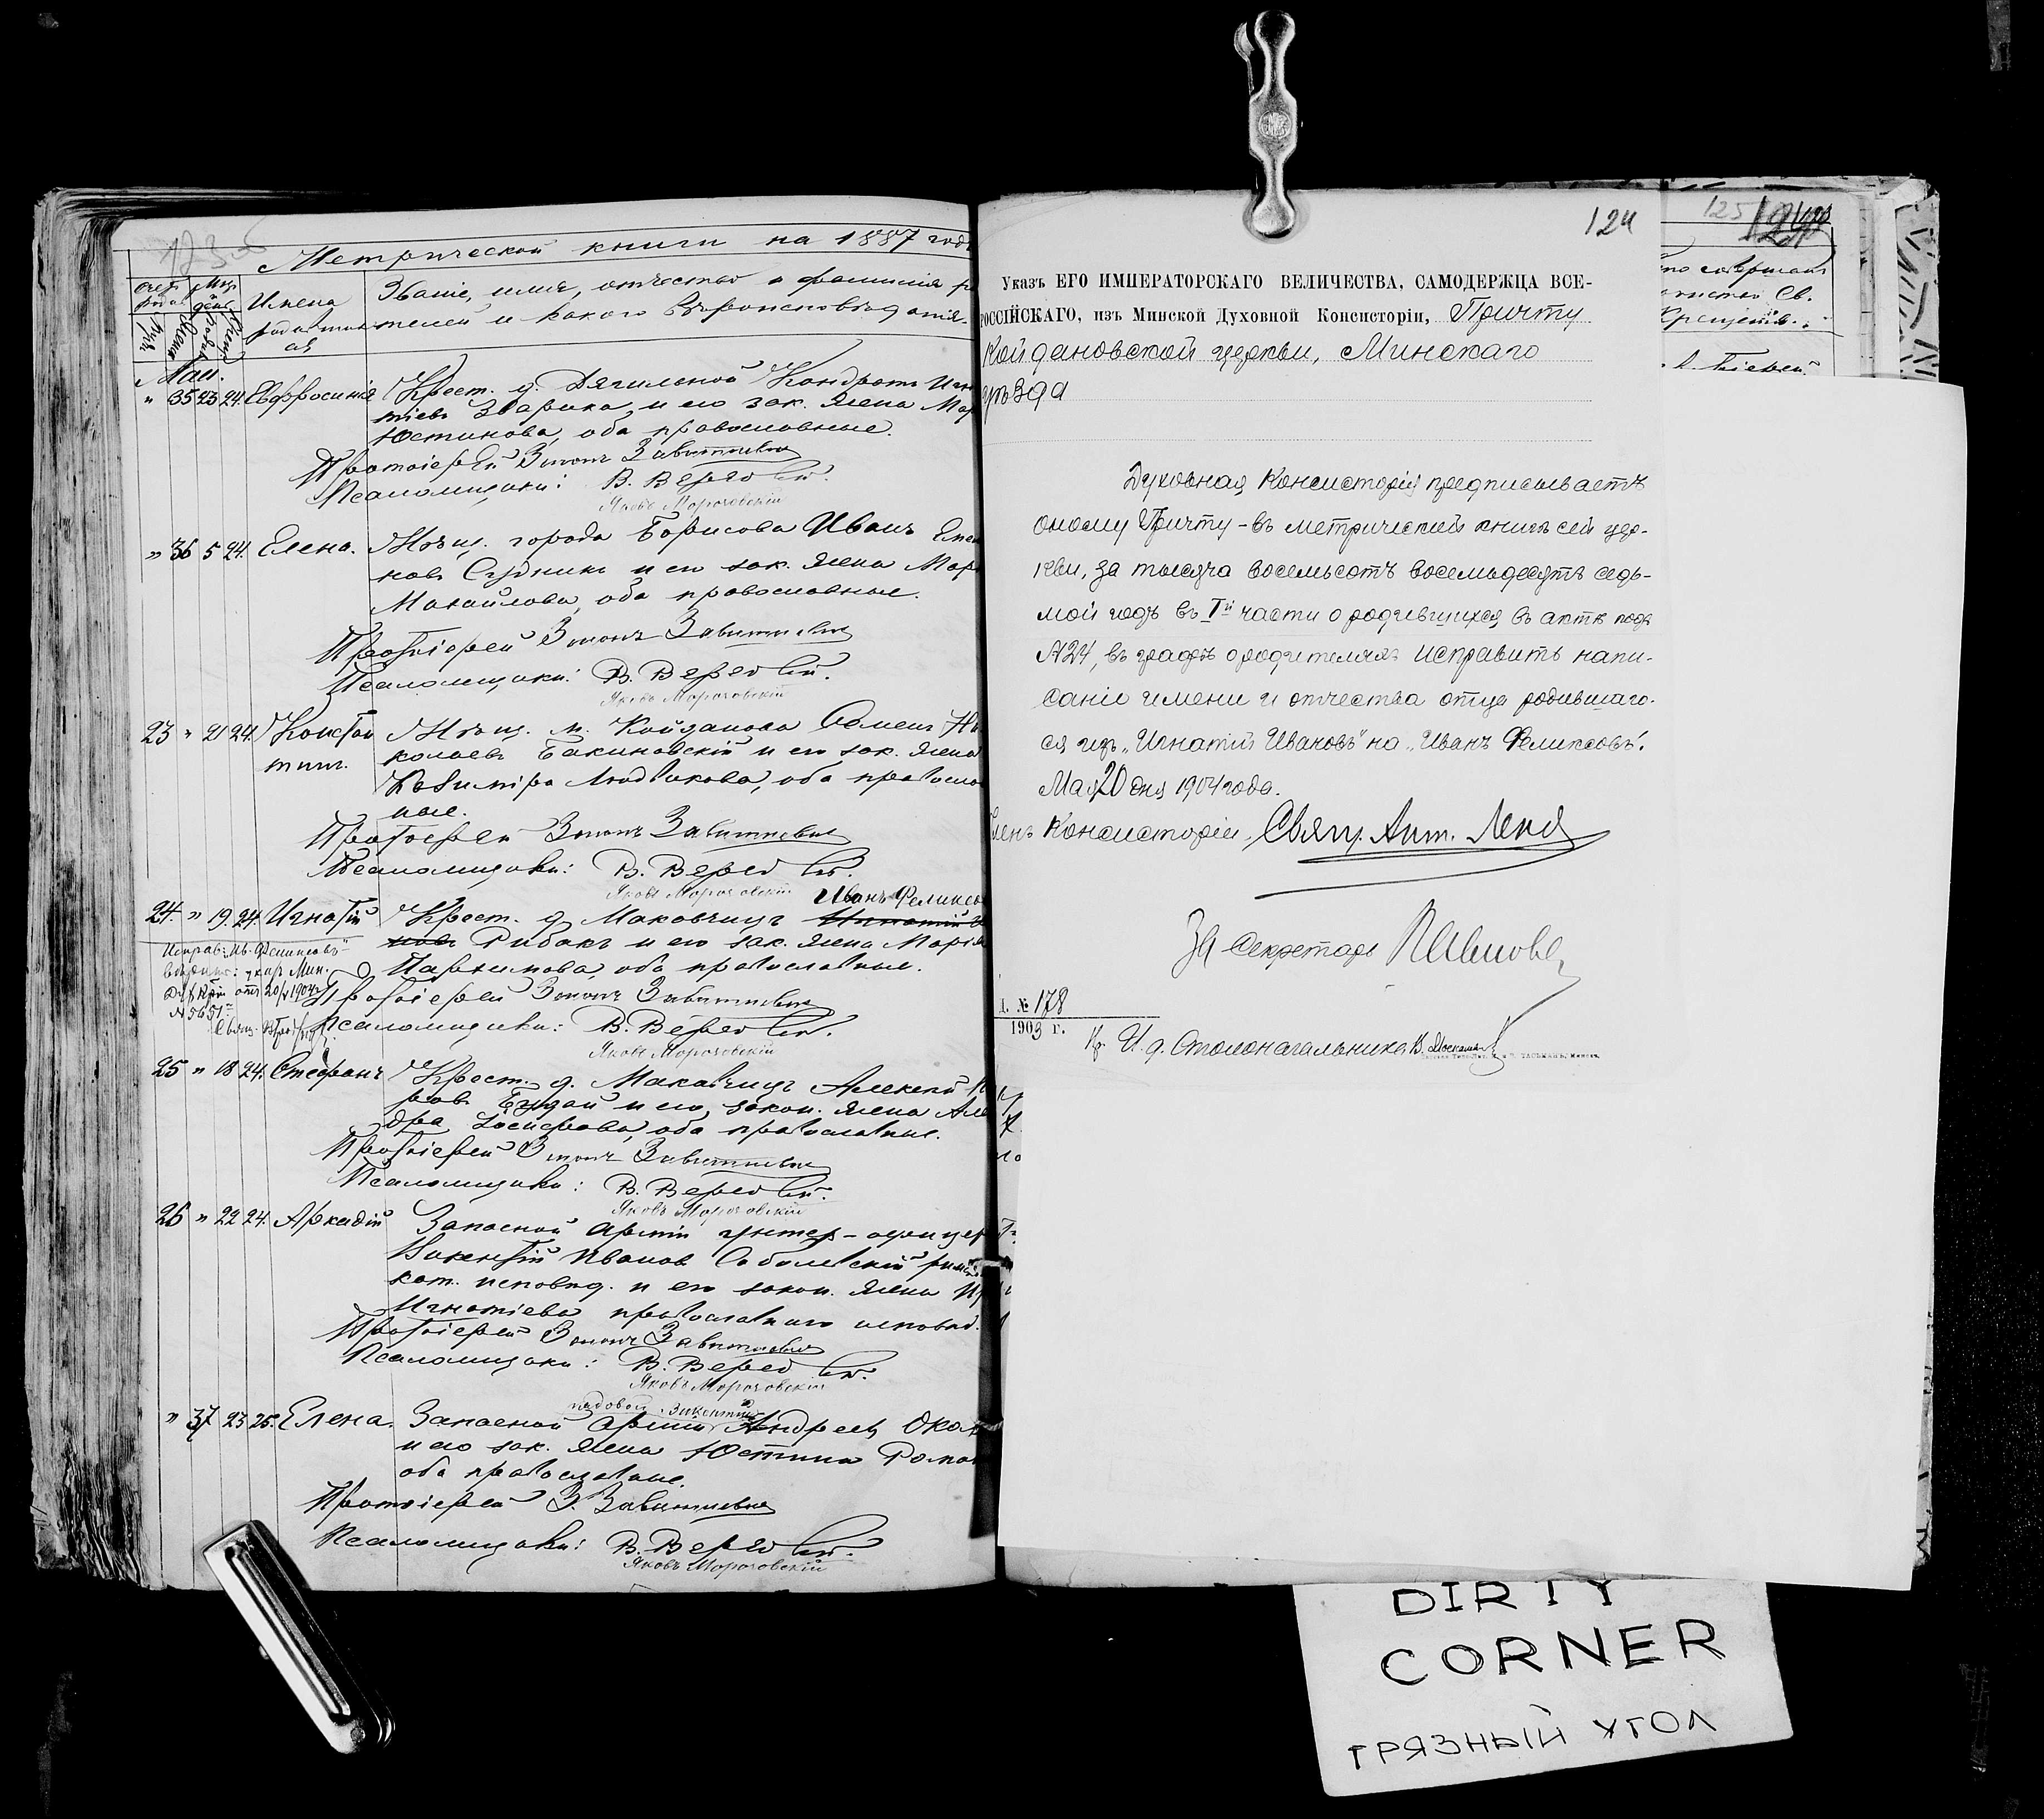 Метрической книги на 1887 годъ
Имена
Званіе, имя, отчество и фамилія
телей и какого вѣроисповѣданія.
Мая.
" 35 23 24. Евфросинія Крест. д. Дягильной Кондратъ Игна
тіевъ Зварика, и его зак. жена Мар
Юстинова, оба православные.
Протоіерей Зинонъ Завитневичъ
Псаломщики: В. Верео
Яковъ Мороховскій
" 36 5 24. Елена. Мѣщ. города Борисова Иванъ
новъ Судникъ и его зак. жена Мар
Михайлова, оба православные.
Протоіерей Зинонъ Завитневичъ
Псаломщики: В. Верео
Яковъ Мороховскій
23 " 21 24. Констан Мѣщ. м. Койданова Семенъ Ни
тинъ. колаевъ Бакиновскій и его зак. жена
Казиміра Людвикова, оба правосла
ные.
Протоіерей Зинонъ Завитневичъ
Псаломщики: В. Верео
Яковъ Мороховскій
Иванъ Феликсо
24. " 19 24. Игнатій Крест. д. Маковчицъ Игнатій И
новъ Рибакъ и его зак. жена Марія
Исправ: "Ив. Феликсовъ"
Мин.
отъ 20/V 1904 г.
№ 5651
оба православные.
Протоіерей Зинонъ Завитневичъ
Псаломщики: В. Верео
Яковъ Мороховскій
25 " 18 24. Стефанъ Крест. д. Маковчицъ Алексѣй
ровъ и его закон. жена Але
дра Іосифова, оба православные.
Протоіерей Зинонъ Завитневичъ
Псаломщики: В. Верео
Яковъ Мороховскій
26 " 22 24. Аркадій Запасной арміи унтер-офицер
Викентій Иванов Соболевскій рим
кат. исповѣд. и его закон. жена
Игнатіева православнаго исповѣд.
Протоіерей Зинонъ Завитневичъ
Псаломщики: В. Верео
Яковъ Мороховскій
рядовой Викентій
" 37 23 25. Елена. Запасной арміи Андреевъ
и его зак. жена Юстина Рома
оба православные.
Протоіерей З. Завитневичъ
Псаломщики: В. Верео
Яковъ Мороховскій
124
125
Указъ ЕГО ИМПЕРАТОРСКАГО ВЕЛИЧЕСТВА, САМОДЕРЖЦА ВСЕ-
РОССІЙСКАГО, изъ Минской Духовной Консисторіи, Причту
Койдановской церкви, Минскаго
уѣзда
Духовная Консисторія предписываетъ
оному Причту - въ метрической книгѣ сей цер-
кви, за тысяча восемьсотъ восемьдесятъ седь-
мой годъ въ Iй части о родившихся въ актѣ подъ
№24, въ графѣ о родителяхъ исправить напи-
саніе имени и отчества отца родившаго-
ся изъ "Игнатій Ивановъ" на "Иванъ Феликсовъ".
Мая 20 дня 1904 года.
Членъ Консисторіи, Свящ. Ант.
За Секретаря
Д. № 178
1903 г.
И. д. Столоначальника
DIRTY
CORNER
ГРЯЗНЫЙ УГОЛ